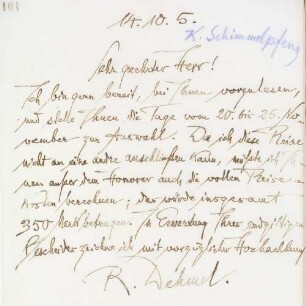 14.10.5.
K. Schimmelpfeng
Sehr geehrter Herr!
Ich bin gern bereit, bei Ihnen vorzulesen,
und stelle Ihnen die Tage vom 20. bis 25. No-
vember zur Auswahl. Da ich diese Reise
nicht an eine andre anschließen kann, müßte ich Ih-
nen außer dem Honorar auch die vollen Reise-
kosten berechnen; das würde insgesamt
350 Mark betragen. In Erwartung Ihres endgiltigen
Bescheides zeichne ich mit vorzüglicher Hochachtung
R. Dehmel.